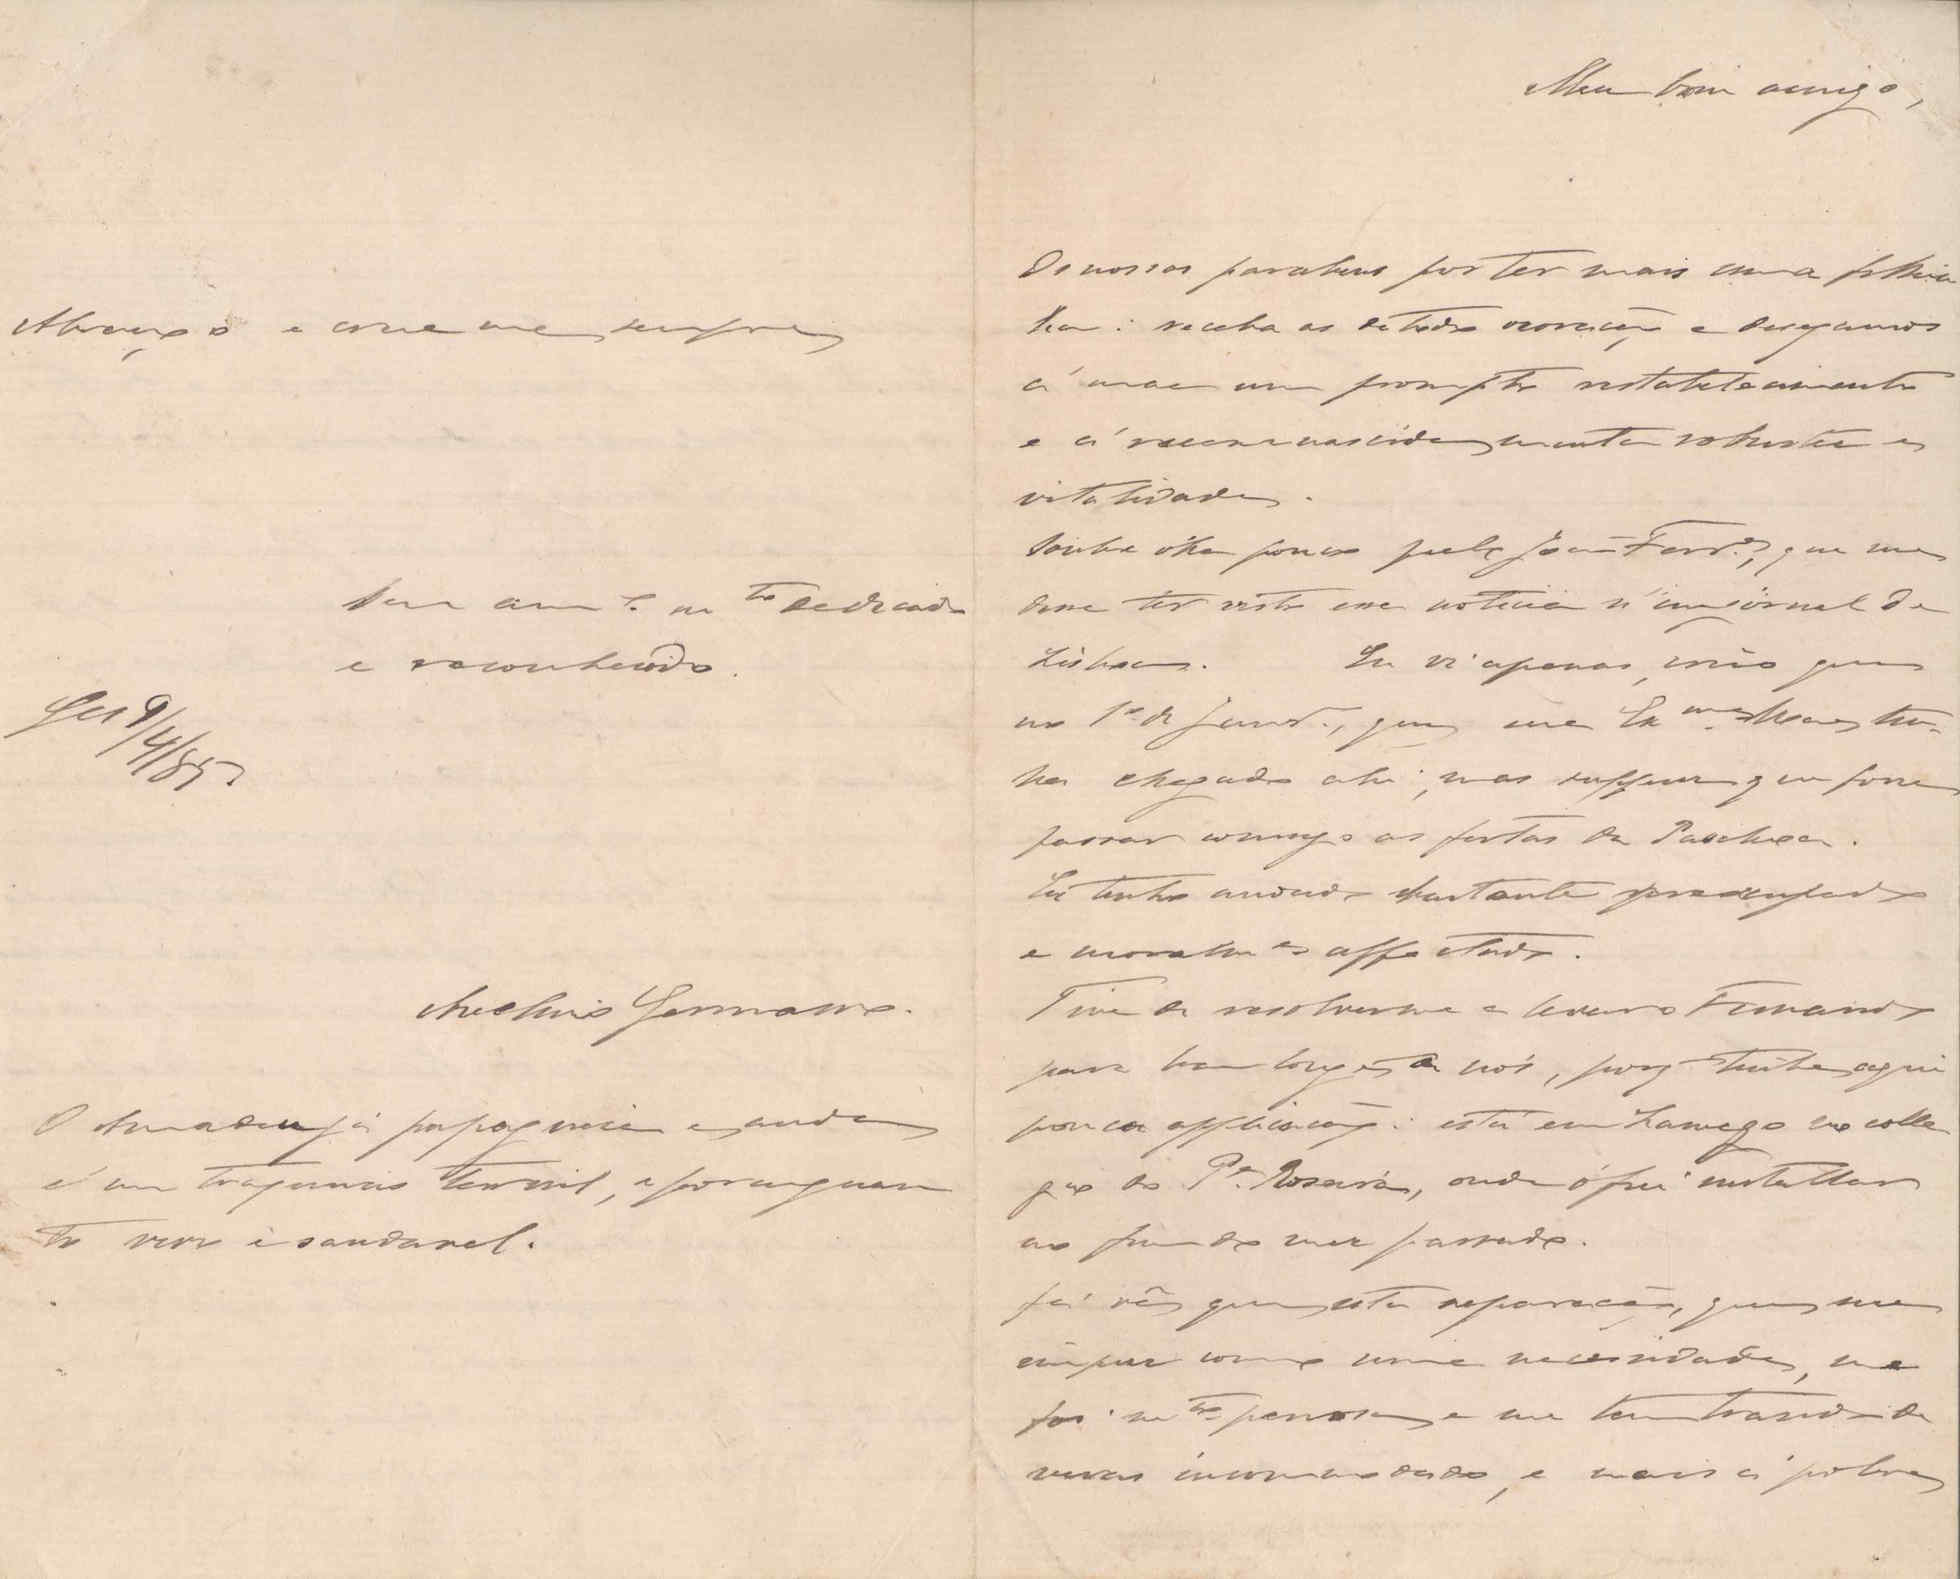 Meu bom amigo,
Os nossos parabens por ter mais uma filhi
nha: receba as de todo coração e desejamos
á mãe um prompto restabelecimento
e á recemnascida muita robustez e
vitalidade.
Soube o ha pouco pelo João Ferr.ª, que me
disse ter visto essa noticia n'um jornal de
Lisboa. Eu vi apenas, creio que
no 1º de Janr.º, que sua Ex.ma tin-
ha chegado ahi, mas suppuz que fosse
passar comsigo as festas da Paschoa.
Eu tenho andado bastante preoccupado
e moralm.e affectado.
Tive de resolver-me a levar o Fernando
para bem longe de nós, porq tinha aqui
pouca applicação: está em Lamego no colle
gio do P.e Roseira, onde o fui installar
no fim do mez passado.
Já vê que esta separação, que me
impuz como uma necessidade, me
foi m.to penosa e me tem trazido de
veras incommodado, e mais á pobre
Abraço o e creia me sempre
Seu am.º m.to dedicado
e reconhecido.
Ges 9/4/85
Avelino Germano.
O Amadeu já papagueia e anda
é um traquinas terrivel, e por emquan
to vivo e saudavel.